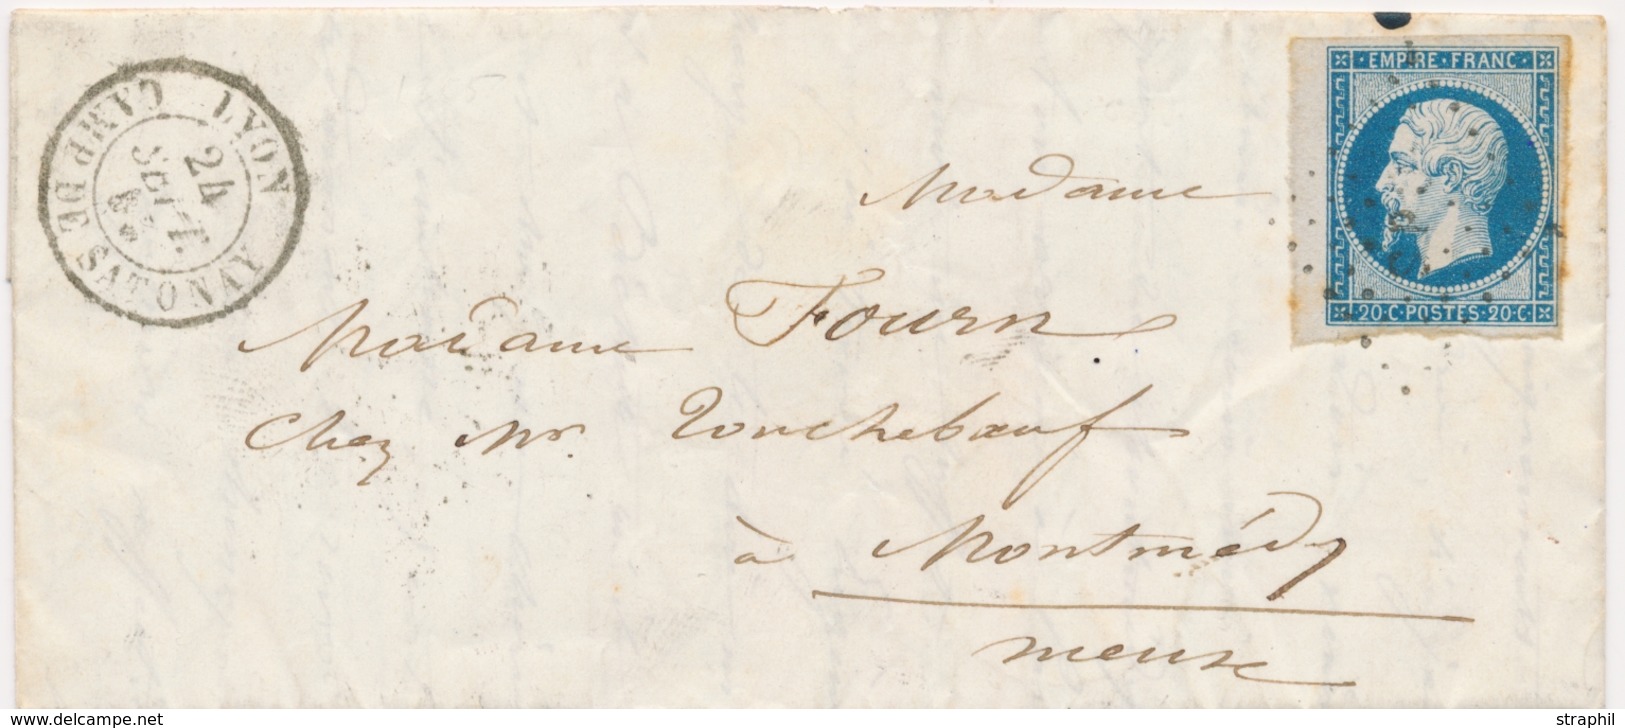 LYON
CAMP DE SATONAY
24
SEPT.
EMPIRE·FRANC·
20·C·POSTES·20·C·
Madame
Madame Fourn
chez Mr Tourchebœuf
à Montmédy
meuse
www.delcampe.net
straphil